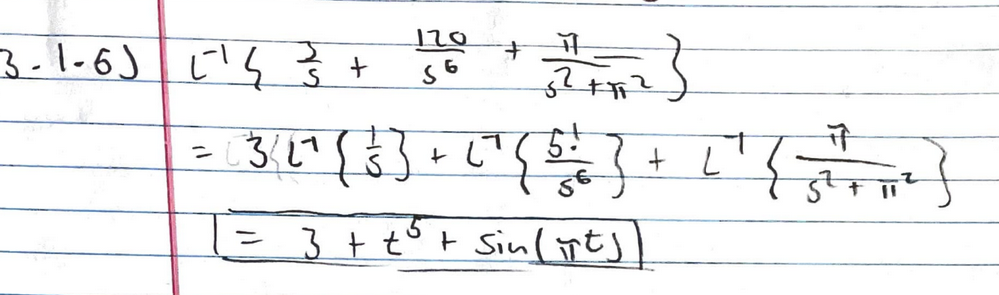 3.1.6) L⁻¹{ 3/s + 120/s⁶ + π/(s² + π²) }
= 3 L⁻¹{ 1/s } + L⁻¹{ 5!/s⁶ } + L⁻¹{ π/(s² + π²) }
= 3 + t⁵ + sin(πt)